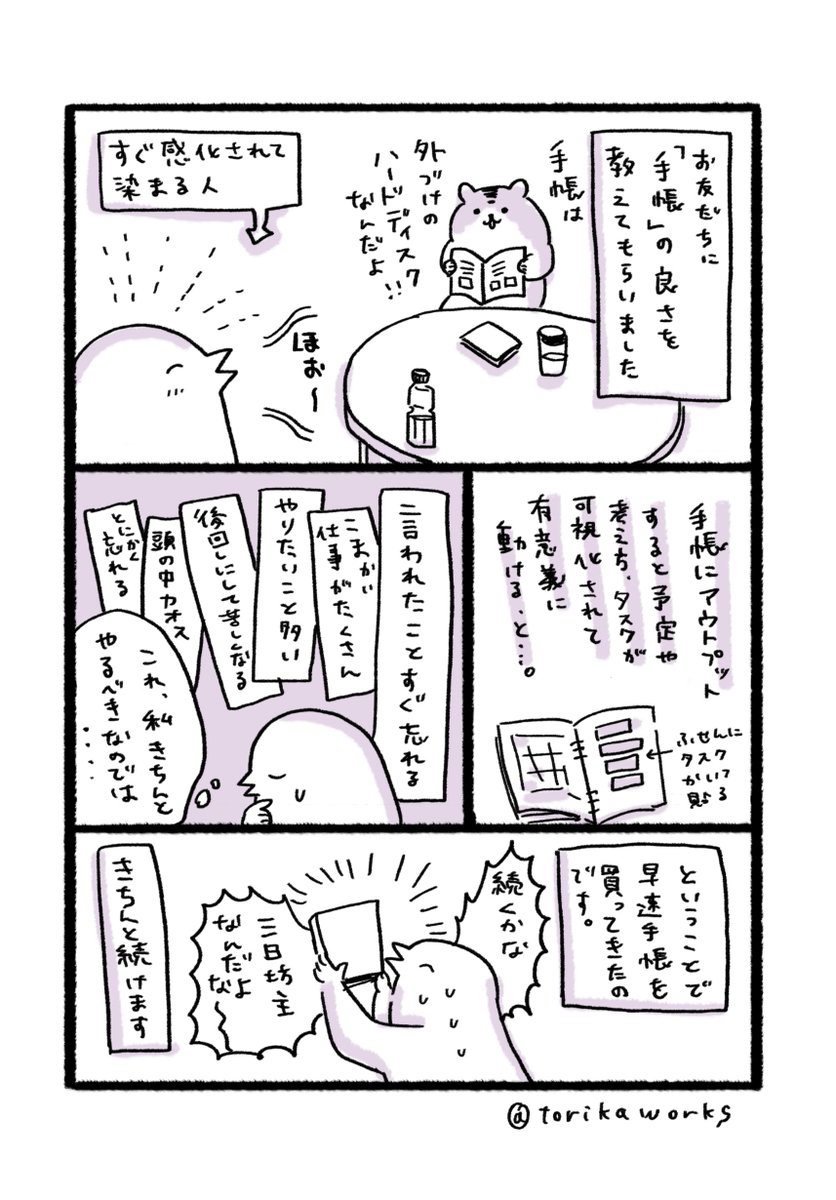 お友だちに
「手帳」の良さを
教えてもらいました
手帳は
外づけの
ハードディスク
なんだよ!!
すぐ感化されて
染まる人
ほぉ〜
手帳にアウトプット
すると予定や
考え方、タスクが
可視化されて
有意義に
動ける、と…。
ふせんに
タスク
が書いてる
貼
言われたことすぐ忘れる
こまかい
仕事がたくさん
やりたいこと多い
後回しにして苦しくなる
頭の中カオス
とにかく
忘れる
これ、私きちんと
やるべきなのでは
・・・・
ということで
早速手帳を
買ってきたの
です。
続くかな
三日坊主
なんだよ
な〜
きちんと続けます
@torikaworks